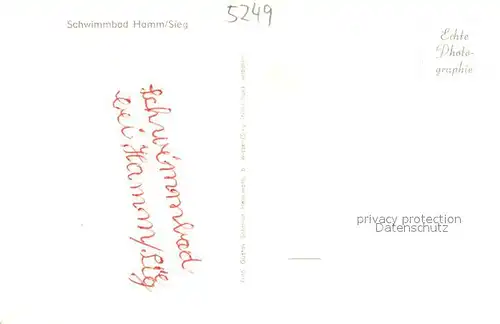 Schwimmbad Hamm/Sieg
5249
Echte
Photo-
graphie
schwimmbad
bei Hamm/Sieg
privacy protection
Datenschutz